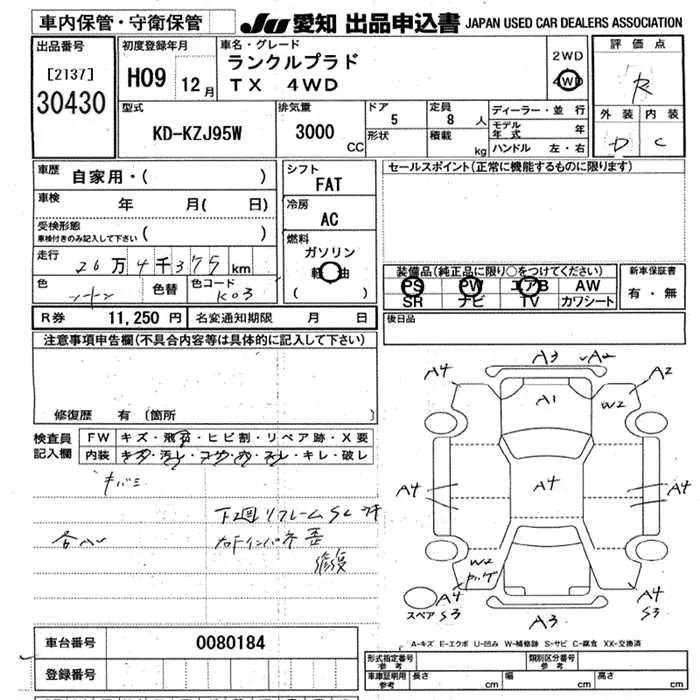 車内保管・守衛保管
JU 愛知 出品申込書 JAPAN USED CAR DEALERS ASSOCIATION
出品番号
[2137]
30430
初度登録年月
H09 12月
車名・グレード
ランクルプラド
TX 4WD
2WD
4WD
評価点
R
外装 内装
D C
型式
KD-KZJ95W
排気量
3000 CC
ドア
5
形状
定員
8 人
積載
kg
ディーラー・並行
モデル年式 年
ハンドル 左・右
車歴
自家用・( )
車検
年 月( 日)
受検形態
車検付きのみ記入して下さい ( )
走行
26万4千375km
色
色替
色コード
K03
シフト
FAT
冷房
AC
燃料
ガソリン
軽油
( )
セールスポイント(正常に機能するものに限ります)
装備品(純正品に限り○をつけてください)
PS PW エアB AW
SR ナビ TV カワシート
新車保証書
有・無
後日品
R券 11,250円 名変通知期限 月 日
注意事項申告欄(不具合内容等は具体的に記入して下さい)
修復歴 有 〔箇所
検査員
記入欄
FW キズ・飛石・ヒビ割・リペア跡・X要
内装 キズ・汚レ・コゲ・穴・スレ・キレ・破レ
キバミ
下廻リフレームSC
歪
修復
A3 ✓A2
A4 A2
A1 W2
A4 A4 A4
W2
A4
S3
スペア
A4
S3
A3
A-キズ E-エクボ U-凹み W-補修跡 S-サビ C-腐食 XX-交換済
車台番号 0080184
登録番号
形式指定番号
参考
類別区分番号
参考
車庫証明用
参考
長さ cm 幅 cm 高さ cm